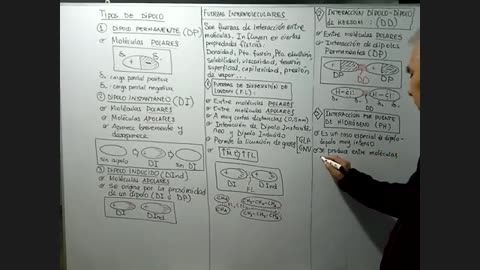 TIPOS DE DIPOLO
① DIPOLO PERMANENTE (DP)
Moléculas POLARES
+ -
δ+ carga parcial positiva
δ- carga parcial negativa
② DIPOLO INSTANTÁNEO (DI)
Moléculas POLARES
Moléculas APOLARES
Aparece brevemente y desaparece
sin dipolo
DI
sin dipolo
③ DIPOLO INDUCIDO (DInd)
Moléculas APOLARES
Se origina por la proximidad
de un dipolo (DI ó DP)
DI
DInd
FUERZAS INTERMOLECULARES
Son fuerzas de interacción entre
moléculas. Influyen en ciertas
propiedades físicas:
Densidad, Pto. fusión, Pto. ebullición,
Solubilidad, viscosidad, tensión
superficial, capilaridad, presión de
vapor...
① FUERZAS DE DISPERSIÓN DE
LONDON (FL):
Entre moléculas POLARES
Entre moléculas APOLARES
A muy cortas distancias
Interacción de Dipolo Instantá-
neo y Dipolo Inducido
Permite la licuación de gases
GLP
GNV
DI
DInd
FL
CH4
CH4
FL
CH3-CH2-CH3
CH3-CH2-CH3
② INTERACCIÓN DIPOLO-DIPOLO
DE KEESOM: (DD)
Entre moléculas POLARES
Interacción de dipolos
Permanentes (DP)
DP
DD
DP
H-Cl
H-Cl
DD
③ INTERACCIÓN POR PUENTE
DE HIDRÓGENO (PH)
Es un caso especial de dipolo-
dipolo muy intenso
Se produce entre moléculas